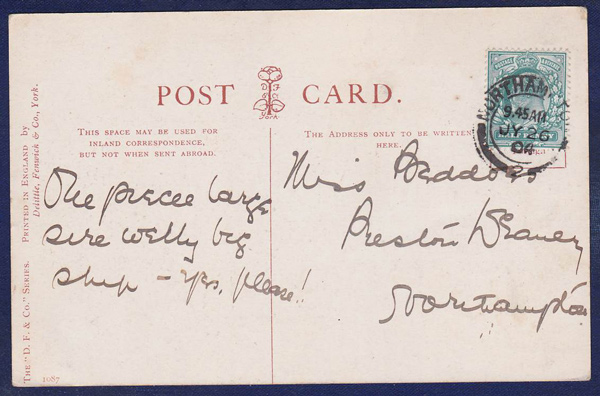 POST CARD.
York
THIS SPACE MAY BE USED FOR
INLAND CORRESPONDENCE,
BUT NOT WHEN SENT ABROAD.
THE ADDRESS ONLY TO BE WRITTEN
HERE.
One precee large
sire welly big
ship – yes, please!!
Miss Beddoes
Preston Deanery
Northampton
NORTHAMPTON
9.45AM
JY 26
04
POSTAGE & REVENUE
THE "D. F. & Co." SERIES. PRINTED IN ENGLAND by
Delittle, Fenwick & Co., York.
1987